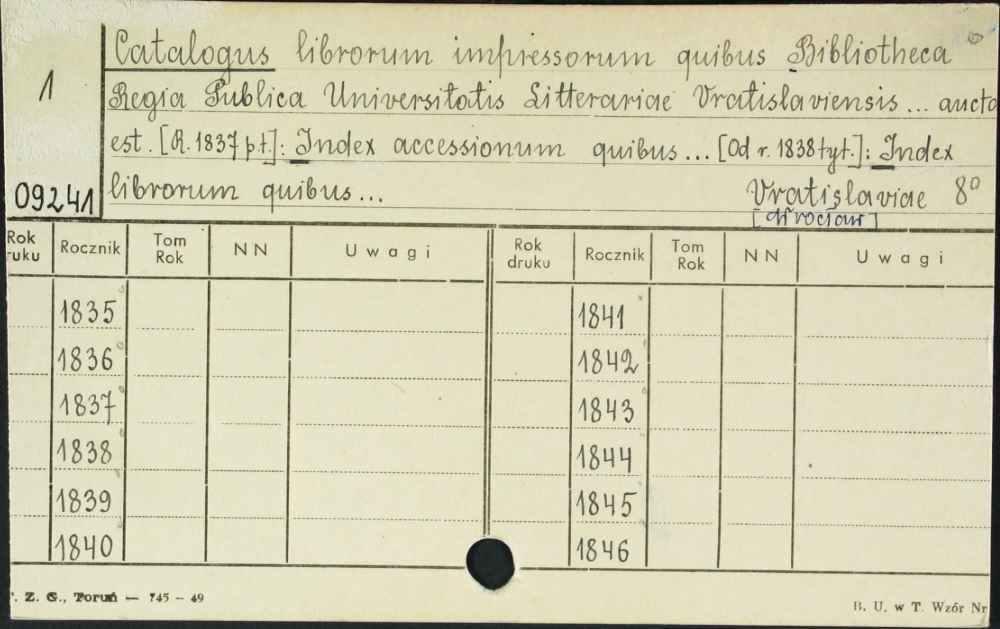 1
09241
Catalogus librorum impressorum quibus Bibliotheca
Regia Publica Universitatis Litterariae Vratislaviensis ... aucta
est. [R. 1837 p.t.]: Index accessionum quibus... [Od r. 1838 tyt.]: Index
librorum quibus...
Vratislaviae 8°
[Wrocław]
Rok ruku Rocznik Tom Rok N N Uwagi Rok druku Rocznik Tom Rok N N Uwagi
1835 1841
1836 1842
1837 1843
1838 1844
1839 1845
1840 1846
. Z. G., Toruń — 745 – 49
B. U. w T. Wzór Nr